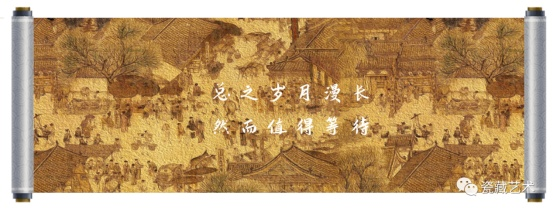 总之岁月漫长
然而值得等待
瓷藏艺术